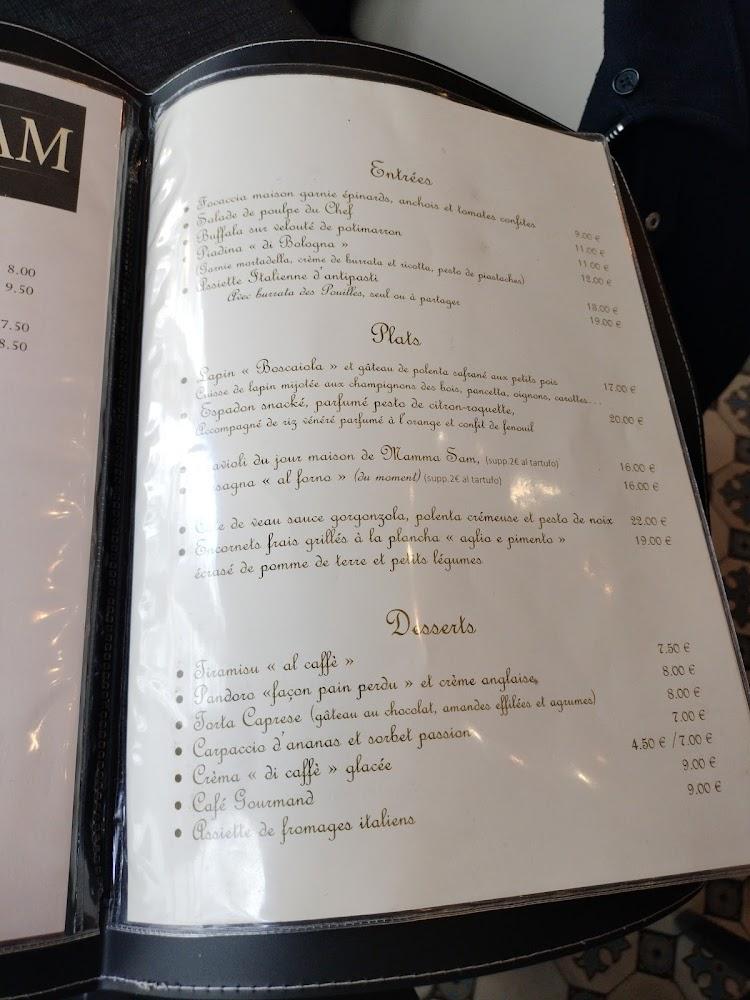 AM
8.00
9.50
7.50
8.50
Entrées
• Focaccia maison garnie épinards, anchois et tomates confites 9.00 €
• Salade de poulpe du Chef 11.00 €
• Buffala sur velouté de potimarron 11.00 €
• Piadina « di Bologna » 12.00 €
(Garnie mortadella, crème de burrata et ricotta, pesto de pistaches)
• Assiette Italienne d'antipasti 18.00 €
Avec burrata des Pouilles, seul ou à partager 19.00 €
Plats
• Lapin « Boscaiola » et gâteau de polenta safrané aux petits pois 17.00 €
Cuisse de lapin mijotée aux champignons des bois, pancetta, oignons, carottes...
• Espadon snacké, parfumé pesto de citron-roquette, 20.00 €
Accompagné de riz vénéré parfumé à l'orange et confit de fenouil
• Ravioli du jour maison de Mamma Sam, (supp.2€ al tartufo) 16.00 €
• Lasagna « al forno » (du moment) (supp.2€ al tartufo) 16.00 €
• de veau sauce gorgonzola, polenta crémeuse et pesto de noix 22.00 €
• Encornets frais grillés à la plancha « aglio e pimento » 19.00 €
écrasé de pomme de terre et petits légumes
Desserts
• Tiramisu « al caffè » 7.50 €
• Pandoro «façon pain perdu » et crème anglaise, 8.00 €
• Torta Caprese (gâteau au chocolat, amandes effilées et agrumes) 8.00 €
• Carpaccio d'ananas et sorbet passion 7.00 €
• Crèma « di caffè » glacée 4.50 € / 7.00 €
• Café Gourmand 9.00 €
• Assiette de fromages italiens 9.00 €